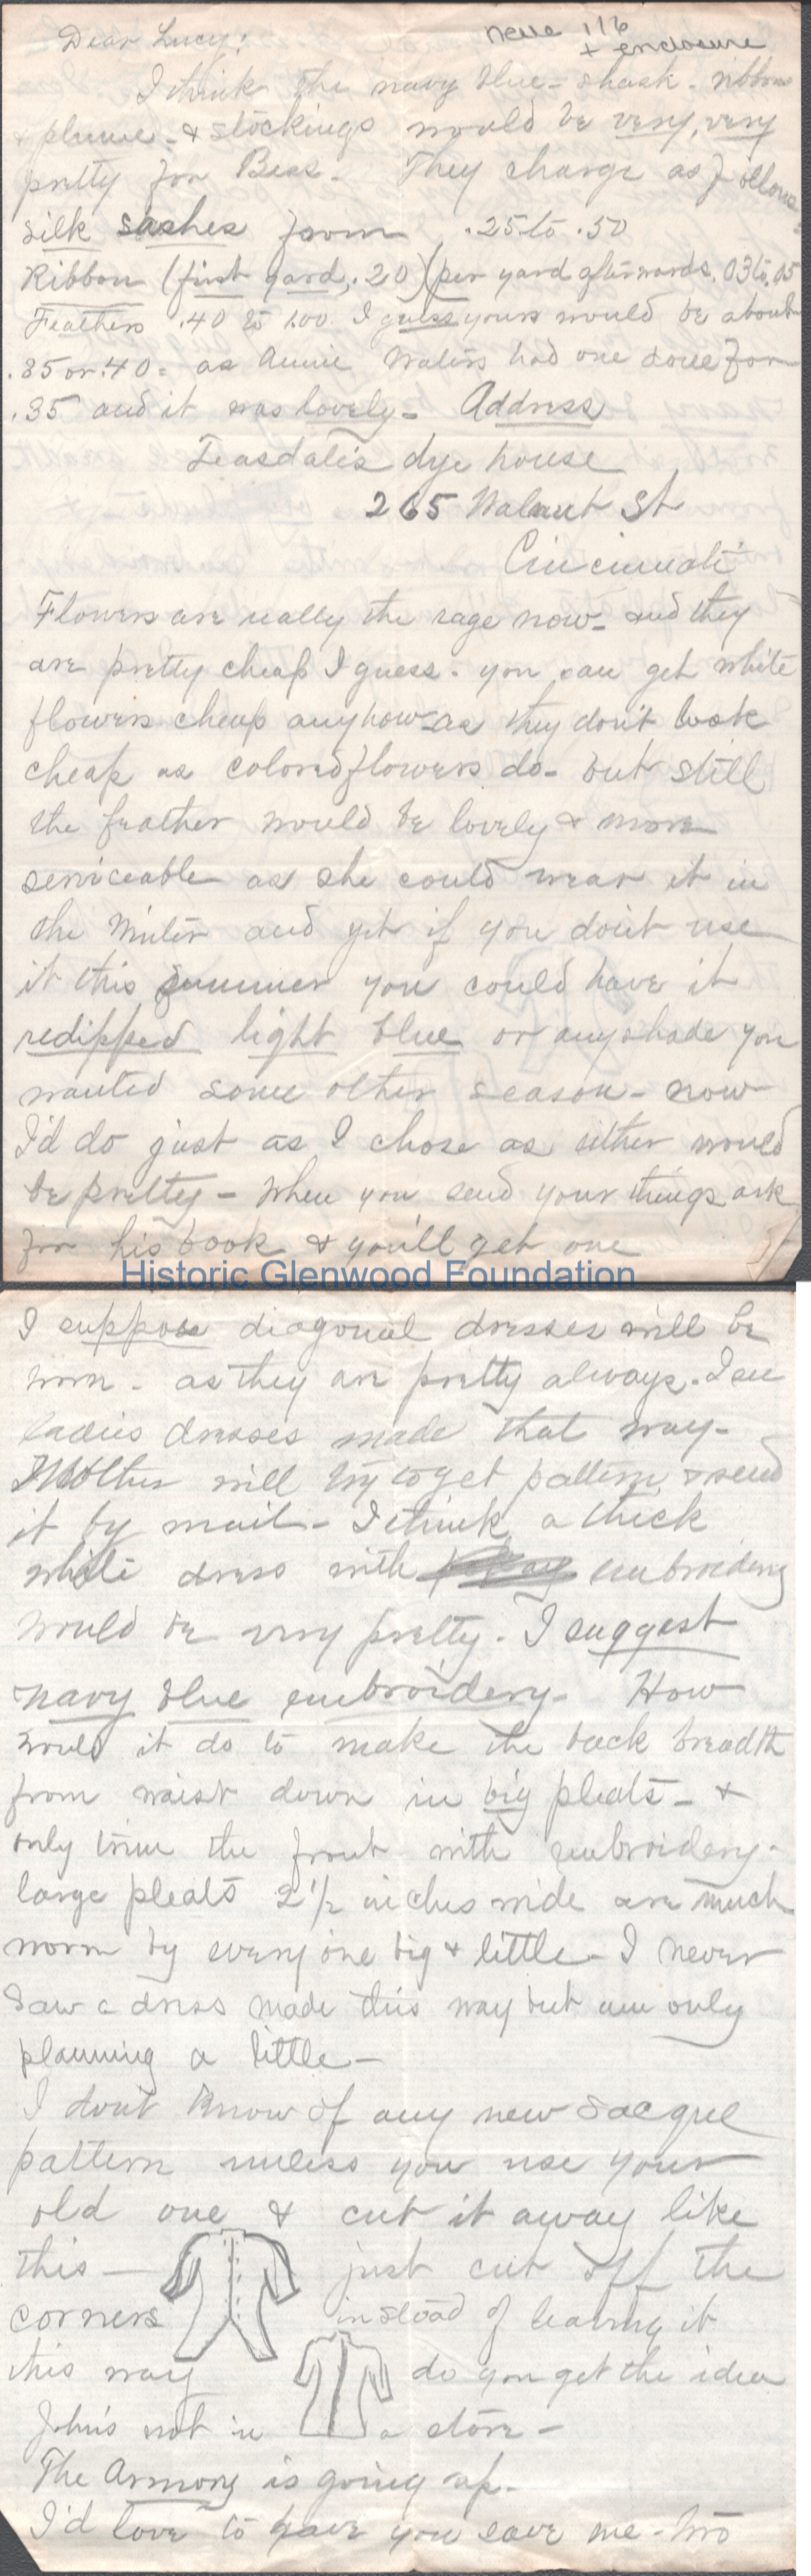 Dear Lucy:
neve 1/6
+ enclosure
I think the navy blue - shash - ribbon
& plume - & stockings would be very, very
pretty for Bess - They charge as follows
silk sashes from .25 to .50
Ribbon (first yard, .20) (per yard afterwards .03 to .05
Feathers .40 to 1.00 I guess yours would be about
.35 or .40 - as Annie Waters had one done for
.35 and it was lovely - Address
Teasdale's dye house
265 Walnut St
Cincinnati
Flowers are really the rage now - and they
are pretty cheap I guess - you can get white
flowers cheap anyhow - as they don't look
cheap as colored flowers do - but still
the feather would be lovely & more
serviceable as she could wear it in
the Winter and yet if you don't use
it this summer you could have it
redipped light blue or any shade you
wanted some other season - now
I'd do just as I chose as either would
be pretty - When you send your things ask
for his book & you'll get one
Historic Glenwood Foundation
I suppose diagonal dresses will be
worn - as they are pretty always. I see
ladies dresses made that way -
Mother will try to get pattern & send
it by mail - I think a thick
white dress with embroidery
would be very pretty. I suggest
navy blue embroidery - How
would it do to make the back breadth
from waist down in big pleats - &
only trim the front with embroidery -
large pleats 2 1/2 inches wide are much
worn by every one big & little - I never
saw a dress made this way but am only
planning a little -
I don't know of any new sacque
pattern unless you use your
old one & cut it away like
this - just cut off the
corners instead of leaving it
this way do you get the idea
John's not in a store -
The Armory is going up -
I'd love to have you save me - two